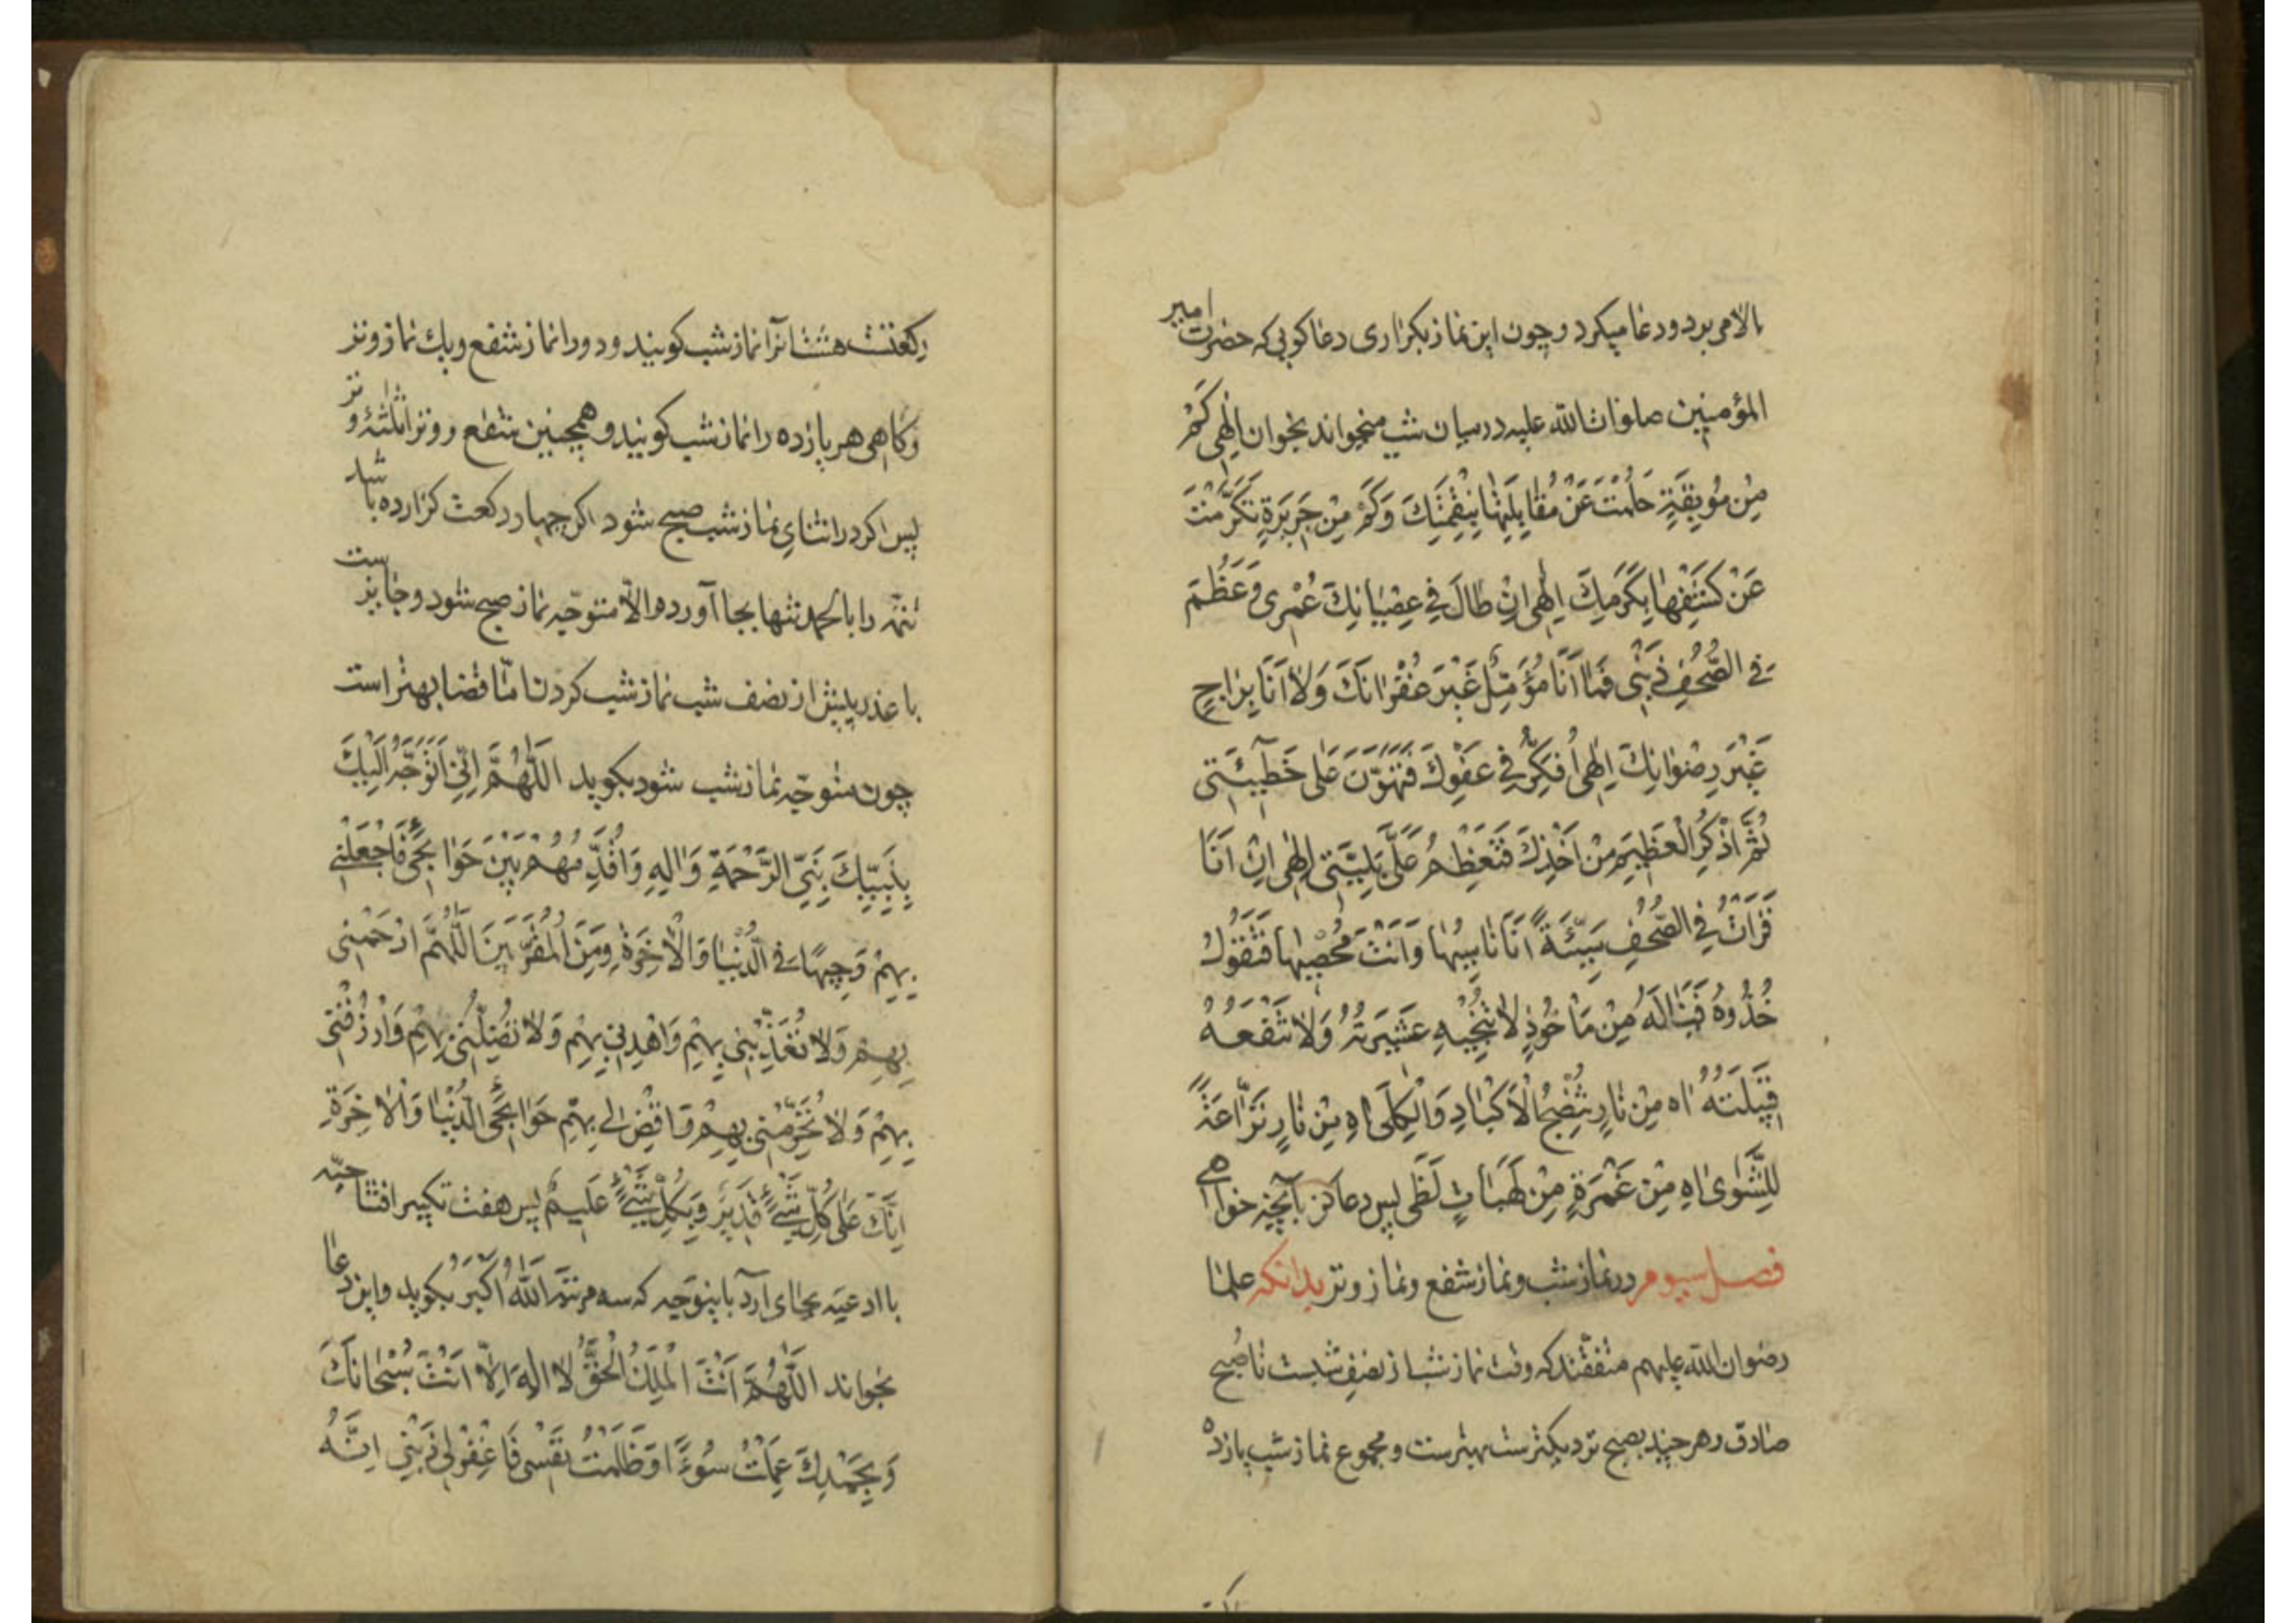 بالا می برد و دعا میکرد و چون این نماز بکزاری دعا کویی که حضرت امیر
المؤمنین صلوات الله علیه در میان شب میخواند بخوان اِلٰهی کَمْ
مِنْ مُوبِقَةٍ حَلُمْتَ عَنْ مُقابَلَتِهٰا بِنِقْمَتِكَ وَكَمْ مِنْ جَرِيرَةٍ تَكَرَّمْتَ
عَنْ كَشْفِهٰا بِكَرَمِكَ اِلٰهی اِنْ طالَ فی عِصْیٰانِكَ عُمْری وَعَظُمَ
فِی الصُّحُفِ ذَنْبی فَمٰا اَنَا مُؤَمِّلٌ غَیْرَ غُفْرٰانِكَ وَلاٰ اَنَا بِرٰاجٍ
غَیْرَ رِضْوٰانِكَ اِلٰهی اُفَكِّرُ فی عَفْوِكَ فَتَهَوَّنَ عَلی خَطٓیئَتی
ثُمَّ اَذْكُرُ الْعَظیمَ مِنْ اَخْذِكَ فَتَعْظُمُ عَلَیَّ بَلِیَّتی اِلٰهی اِنْ اَنَا
قَرَأْتُ فِی الصُّحُفِ سَیِّئَةً اَنَا نٰاسیهٰا وَاَنْتَ مُحْصیهٰا فَتَقُولُ
خُذُوهُ فَیٰالَهُ مِنْ مَاْخُوذٍ لاٰ تُنْجیهِ عَشیرَتُهُ وَلاٰ تَنْفَعُهُ
قَبیلَتُهُ اٰه مِنْ نٰارٍ تُنْضِجُ الْاَكْبٰادِ وَالْكِلٰی اٰهِ مِنْ نٰارٍ نَزّٰاعَةً
لِلشَّوٰی اٰهِ مِنْ غَمْرَةٍ مِنْ لَهَبٰاتِ لَظٰی پس دعا کن بآنچه خواهی
فصل سیوم در نماز شب و نماز شفع و نماز وتر بدانکه علما
رضوان الله علیهم متفقند که وقت نماز شب از نصف شبست تا صبح
صادق و هر چند بصبح نزدیکترست بهترست و مجموع نماز شب یازده
رکعتست هشتا نرا نماز شب کویند و دو را نماز شفع و یك نماز وتر
و کاهی هر یازده را نماز شب کویند و همچنین شفع و وتر را ثلثه وتر
پس اکر در اثنای نماز شب صبح شود اکر چهار رکعت کزارده باشد
تتمّه را بالحمد تنها بجا آورد والّا متوجّه نماز صبح شود و جایزست
با عذر پیش از نصف شب نماز شب کردن امّا قضا بهتر است
چون متوجّه نماز شب شود بکوید اَللّٰهُمَّ اِنّی اَتَوَجَّهُ اِلَیْكَ
بِنَبِیِّكَ نَبِیِّ الرَّحْمَةِ وَاٰلِهِ وَاُقَدِّمُهُمْ بَیْنَ حَوٰائِجی فَاجْعَلْنی
بِهِمْ وَجیهًا فِی الدُّنْیٰا وَالْاٰخِرَةِ وَمِنَ الْمُقَرَّبینَ اللّٰهُمَّ ارْحَمْنی
بِهِمْ وَلاٰ تُعَذِّبْنی بِهِمْ وَاهْدِنی بِهِمْ وَلاٰ تُضِلَّنی بِهِمْ وَارْزُقْنی
بِهِمْ وَلاٰ تَحْرِمْنی بِهِمْ وَاقْضِ لی بِهِمْ حَوٰائِجَ الدُّنْیٰا وَالْاٰخِرَةِ
اِنَّكَ عَلٰی كُلِّ شَیْءٍ قَدیرٌ وَبِكُلِّ شَیْءٍ عَلیمٌ پس هفت تکبیر افتتاحیّه
با ادعیه بجای آرد باینوجه که سه مرتبه اَللّٰهُ اَكْبَرُ بکوید و این دعا
بخواند اَللّٰهُمَّ اَنْتَ الْمَلِكُ الْحَقُّ لاٰ اِلٰهَ اِلّاٰ اَنْتَ سُبْحٰانَكَ
وَبِحَمْدِكَ عَمِلْتُ سُوٓءًا وَظَلَمْتُ نَفْسی فَاغْفِرْ لی ذَنْبی اِنَّهُ